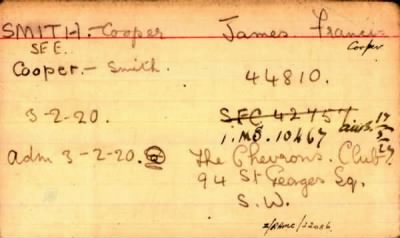 SMITH. - Cooper James Francis
SEE Cooper
Cooper. - Smith.
44810.
3-2-20. SFC 42457
1. MS. 10467
adm 3-2-20. The Chevrons. Club
94 St Georges Sq.
S.W.